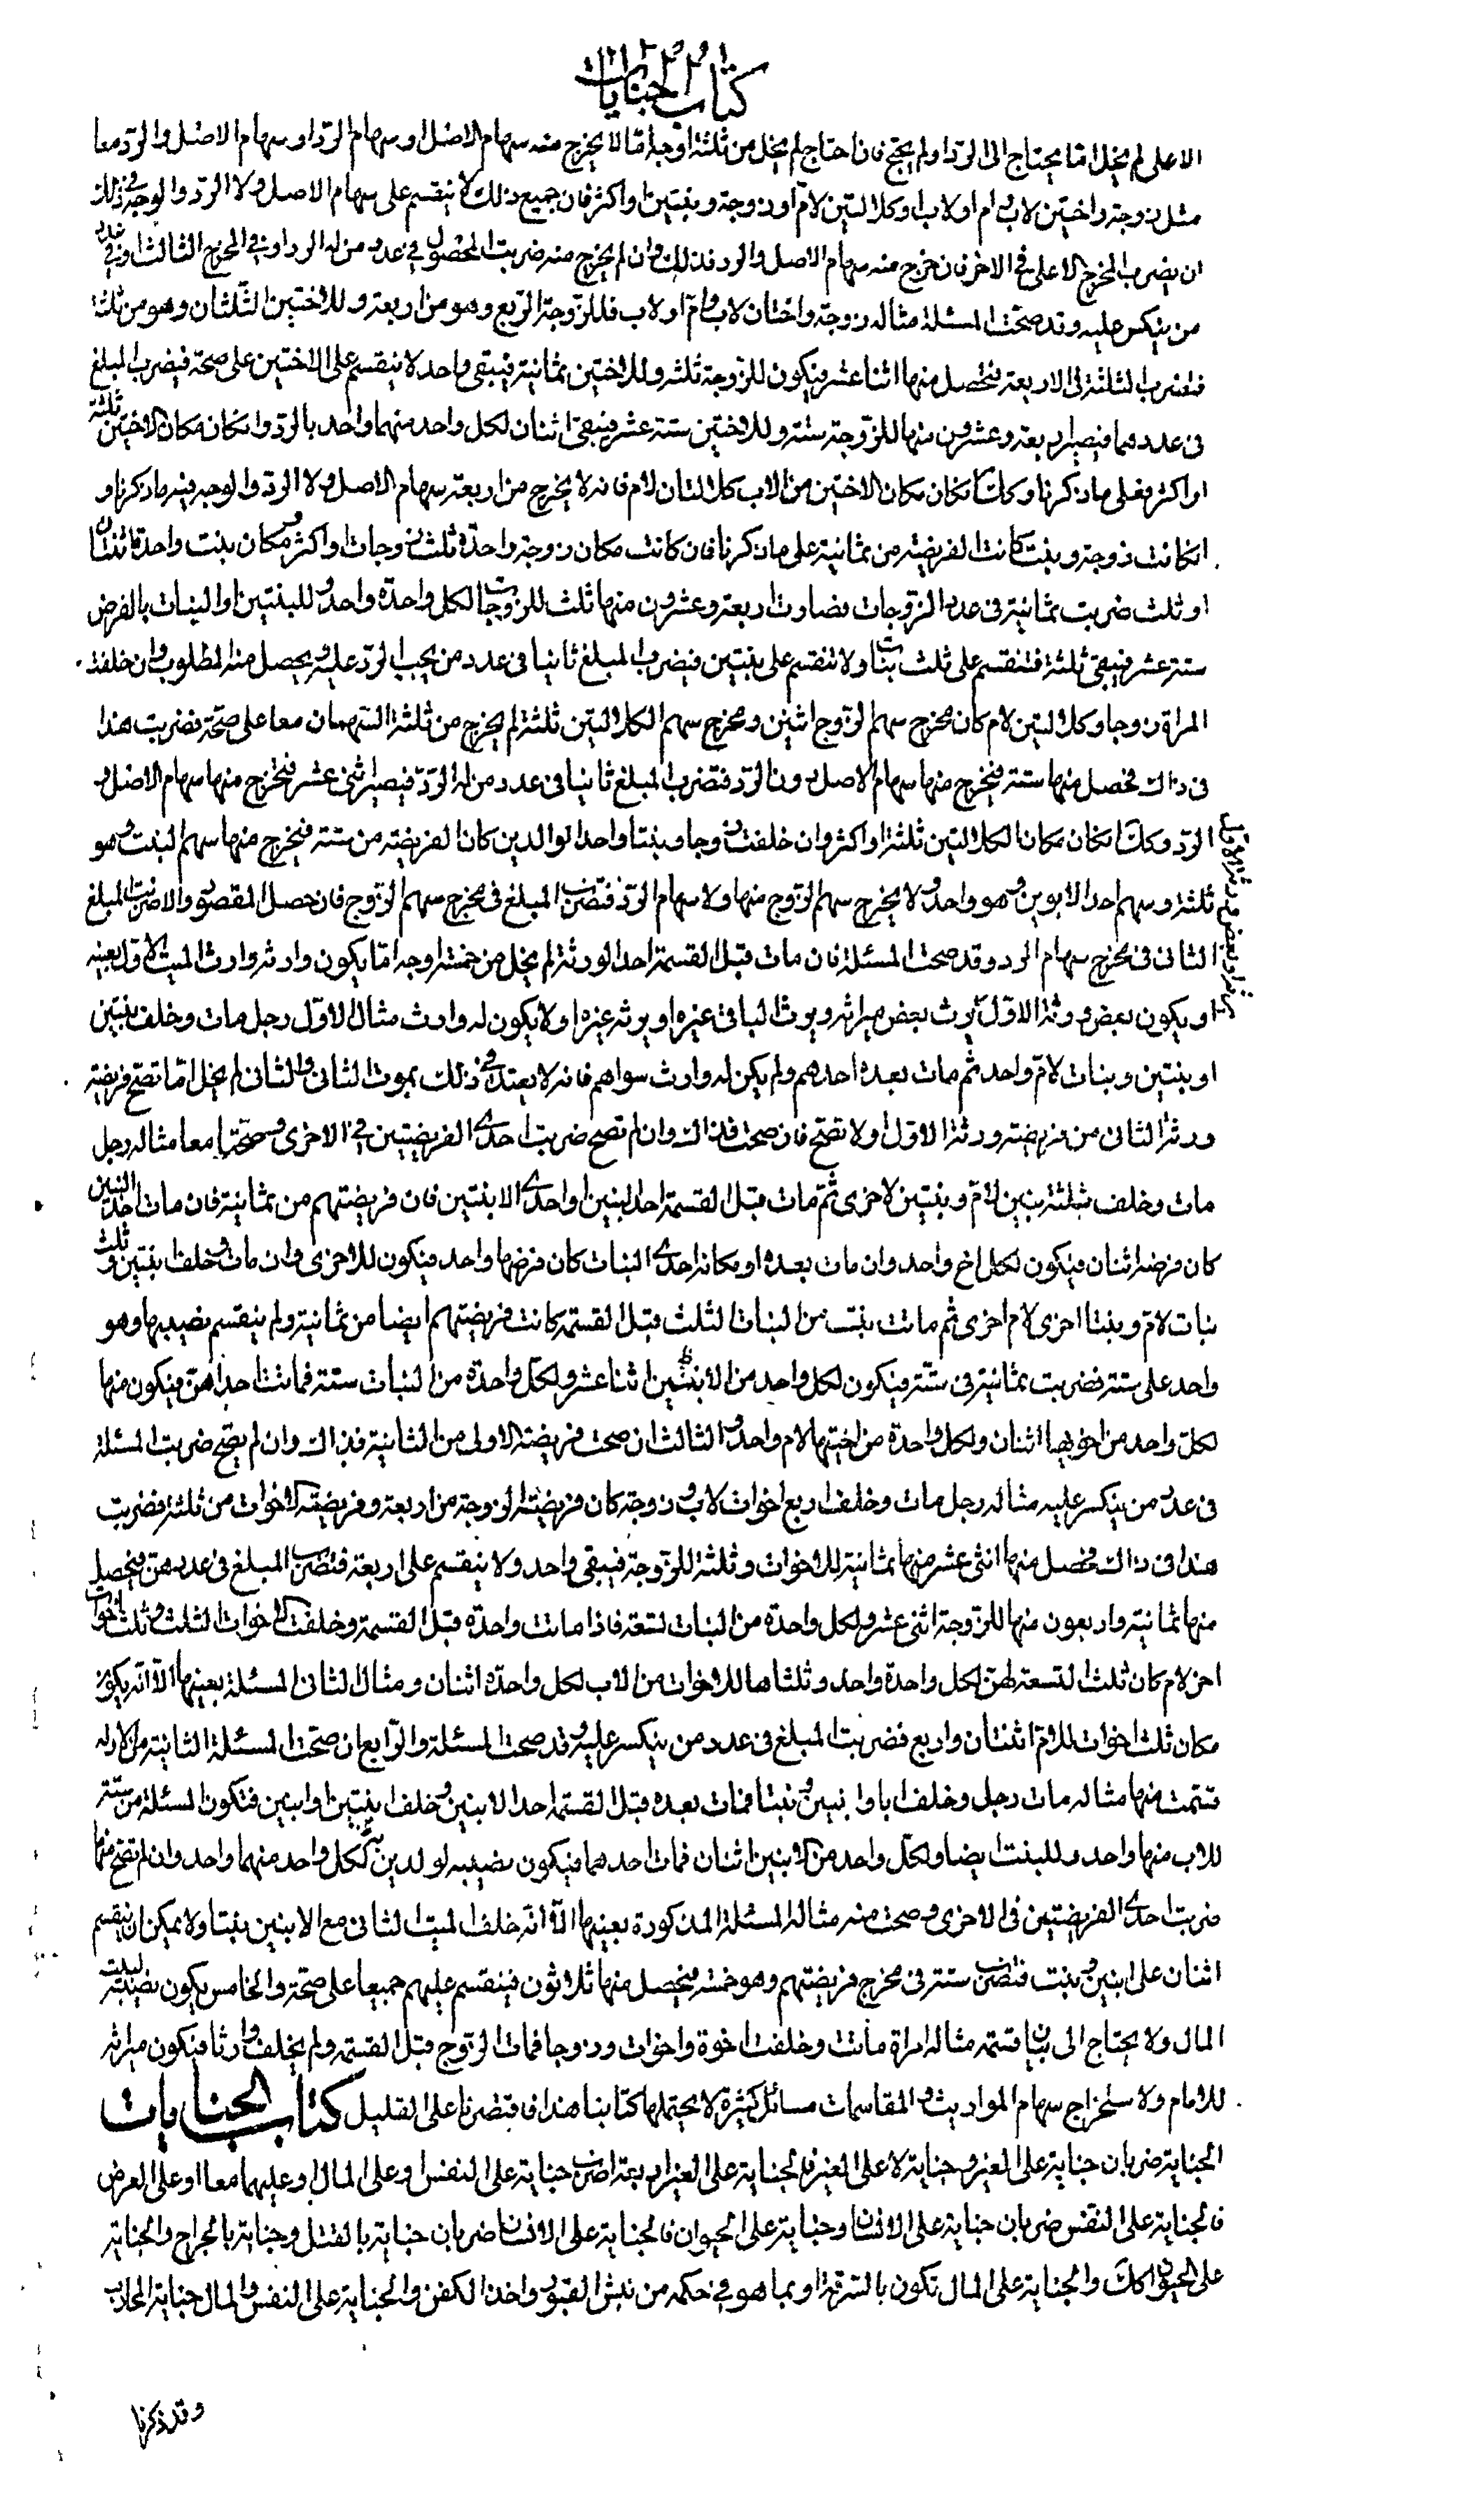 كتاب الجنايات
الاعلى لم يخل اما يحتاج الى الرد او لم يحتج فان احتاج لم يخل من ثلثة اوجه اما لا يخرج منه سهام الاصل او سهام الرد او سهام الاصل والرد معا
مثل زوجة واختين لاب وام او لاب او كلالتين لام او زوجة وبنتين او اكثر فان جميع ذلك لا ينقسم على سهام الاصل ولا الرد والوجه في ذلك
ان يضرب المخرج الاعلى في الاخر فان خرج منه سهام الاصل والرد فذلك وان لم يخرج منه ضربت المحصول في عدد من له الرد او في المخرج الثالث او في عدد
من ينكسر عليه وقد صحت المسئلة مثاله زوجة واختان لاب وام او لاب فللزوجة الربع وهو من اربعة وللاختين الثلثان وهو من ثلثة
فتضرب الثلثة في الاربعة فتحصل منها اثنا عشر فيكون للزوجة ثلثة وللاختين ثمانية فيبقى واحد لا ينقسم على الاختين على صحة فيضرب المبلغ
في عددهما فيصير اربعة وعشرون منها للزوجة ستة وللاختين ستة عشر فيبقى اثنان لكل واحد منهما واحد بالرد وان كان مكان الاختين ثلثة
او اكثر فعلى ما ذكرنا وكك ان كان مكان الاختين من الاب كلالتان لام فانه لا يخرج من اربعة سهام الاصل ولا الرد والوجه فيه ما ذكرناه و
ان كانت زوجة وبنت كانت الفريضة من ثمانية على ما ذكرنا فان كانت مكان زوجة واحدة ثلث زوجات او اكثر ومكان بنت واحدة اثنتان
او ثلث ضربت ثمانية في عدد الزوجات فصارت اربعة وعشرون منها ثلث للزوجات لكل واحدة واحد وللبنتين او البنات بالفرض
ستة عشر فيبقى ثلثة فتنقسم على ثلث بنات ولا تنقسم على بنتين فيضرب المبلغ ثانيا في عدد من يجب الرد عليه ويحصل منه المطلوب وان خلفت
المراة زوجا وكلالتين لام كان مخرج سهم الزوج اثنين ومخرج سهم الكلالتين ثلثة لم يخرج من ثلثة السهمان معا على صحة فضربت هذا
في ذاك فحصل منها ستة فيخرج منها سهام الاصل دون الرد فتضرب المبلغ ثانيا في عدد من له الرد فيصير اثنى عشر فيخرج منها سهام الاصل و
الرد وكك ان كان مكان الكلالتين ثلثة او اكثر وان خلفت زوجا وبنتا واحد الوالدين كان الفريضة من ستة فيخرج منها سهم البنت وهو
ثلثة وسهم احد الابوين وهو واحد ولا يخرج سهم الزوج منها ولا سهام الرد فتضرب المبلغ في مخرج سهم الزوج فان حصل المقصود والا ضربت المبلغ
الثاني في مخرج سهام الرد وقد صحت المسئلة فان مات قبل القسمة احد الورثة لم يخل من خمسة اوجه اما يكون وارثه وارث الميت الاول بعينه
او يكون بعض ورثة الاول يرث بعض ميراثه ويرث الباقي غيره او يرثه غيره او لا يكون له وارث مثال الاول رجل مات وخلف بنتين
او بنتين وبنات لام واحد ثم مات بعده احدهم ولم يكن له وارث سواهم فانه لا يعتد في ذلك بموت الثاني والثاني لم يخل اما تصح فريضة
ورثة الثاني من فريضة ورثة الاول او لا تصح فان صحت فذاك وان لم تصح ضربت احدى الفريضتين في الاخرى وصحتا معا مثاله رجل
مات وخلف ثلثة بنين لام وبنتين لاخرى ثم مات قبل القسمة احد البنين او احدى الابنتين فان فريضتهم من ثمانية فان مات احد البنين
كان فرضه اثنان فيكون لكل اخ واحد وان مات بعده او مكانه احدى البنات كان فرضها واحد فيكون للاخرى وان مات وخلف بنتين وثلث
بنات لام وبنتا اخرى لام اخرى ثم ماتت بنت من البنات الثلث قبل القسمة كانت فريضتهم ايضا من ثمانية ولم ينقسم نصيبها وهو
واحد على ستة فضربت ثمانية في ستة فيكون لكل واحد من الابنين اثنا عشر ولكل واحدة من البنات ستة فماتت احداهن فيكون منها
لكل واحد من اخويها اثنان ولكل واحدة من اختيها لام واحد والثالث ان صحت فريضة الاولى من الثانية فذاك وان لم يصح ضربت المسئلة
في عدد من ينكسر عليه مثاله رجل مات وخلف اربع اخوات لاب وزوجة كان فريضة الزوجة من اربعة وفريضة الاخوات من ثلثة فضربت
هذا في ذاك فحصل منها اثنى عشر منها ثمانية للاخوات وثلثة للزوجة فيبقى واحد ولا ينقسم على اربعة فتضرب المبلغ في عددهن فيحصل
منها ثمانية واربعون منها للزوجة اثنى عشر ولكل واحدة من البنات تسعة فاذا ماتت واحدة قبل القسمة وخلفت الاخوات الثلث وثلث اخوات
اخر لام كان ثلث التسعة لهن لكل واحدة واحد وثلثاها للاخوات من الاب لكل واحدة اثنان ومثال الثاني المسئلة بعينها الا انه يكون
مكان ثلث اخوات للام اثنتان واربع فضربت المبلغ في عدد من ينكسر عليه وقد صحت المسئلة والرابع ان صحت المسئلة الثانية من الاولى
قسمت منها مثاله مات رجل وخلف ابا وابنين وبنتا فمات بعده قبل القسمة احد الابنين وخلف بنتين او ابنين فتكون المسئلة من ستة
للاب منها واحد وللبنت ايضا ولكل واحد من الابنين اثنان فمات احدهما فيكون نصيبه لولديه لكل واحد منهما واحد وان لم تصح منها
ضربت احدى الفريضتين في الاخرى وصحت منه مثاله المسئلة المذكورة بعينها الا انه خلف الميت الثاني مع الابنين بنتا ولا يمكن ان ينقسم
اثنان على ابنين وبنت فتضرب ستة في مخرج فريضتهم وهو خمسة فيحصل منها ثلاثون فينقسم عليهم جميعا على صحة والخامس يكون نصيبه لبيت
المال ولا يحتاج الى بيان قسمته مثاله امراة ماتت وخلفت اخوة واخوات وزوجا فمات الزوج قبل القسمة ولم يخلف وارثا فيكون ميراثه
للامام ولاستخراج سهام المواريث والمقاسمات مسائل كثيرة لا يحتملها كتابنا هذا فاقتصرنا على القليل كتاب الجنايات
الجناية ضربان جناية على الغير وجناية لا على الغير فالجناية على الغير اربعة اضرب جناية على النفس وعلى المال وعليهما معا او على العرض
فالجناية على النفس ضربان جناية على الانسان وجناية على الحيوان فالجناية على الانسان ضربان جناية بالقتل وجناية بالجراح والجناية
على الحيوان كك والجناية على المال تكون بالسرقة او بما هو في حكمه من نبش القبور واخذ الكفن والجناية على النفس والمال جناية المحارب
وقد ذكرنا